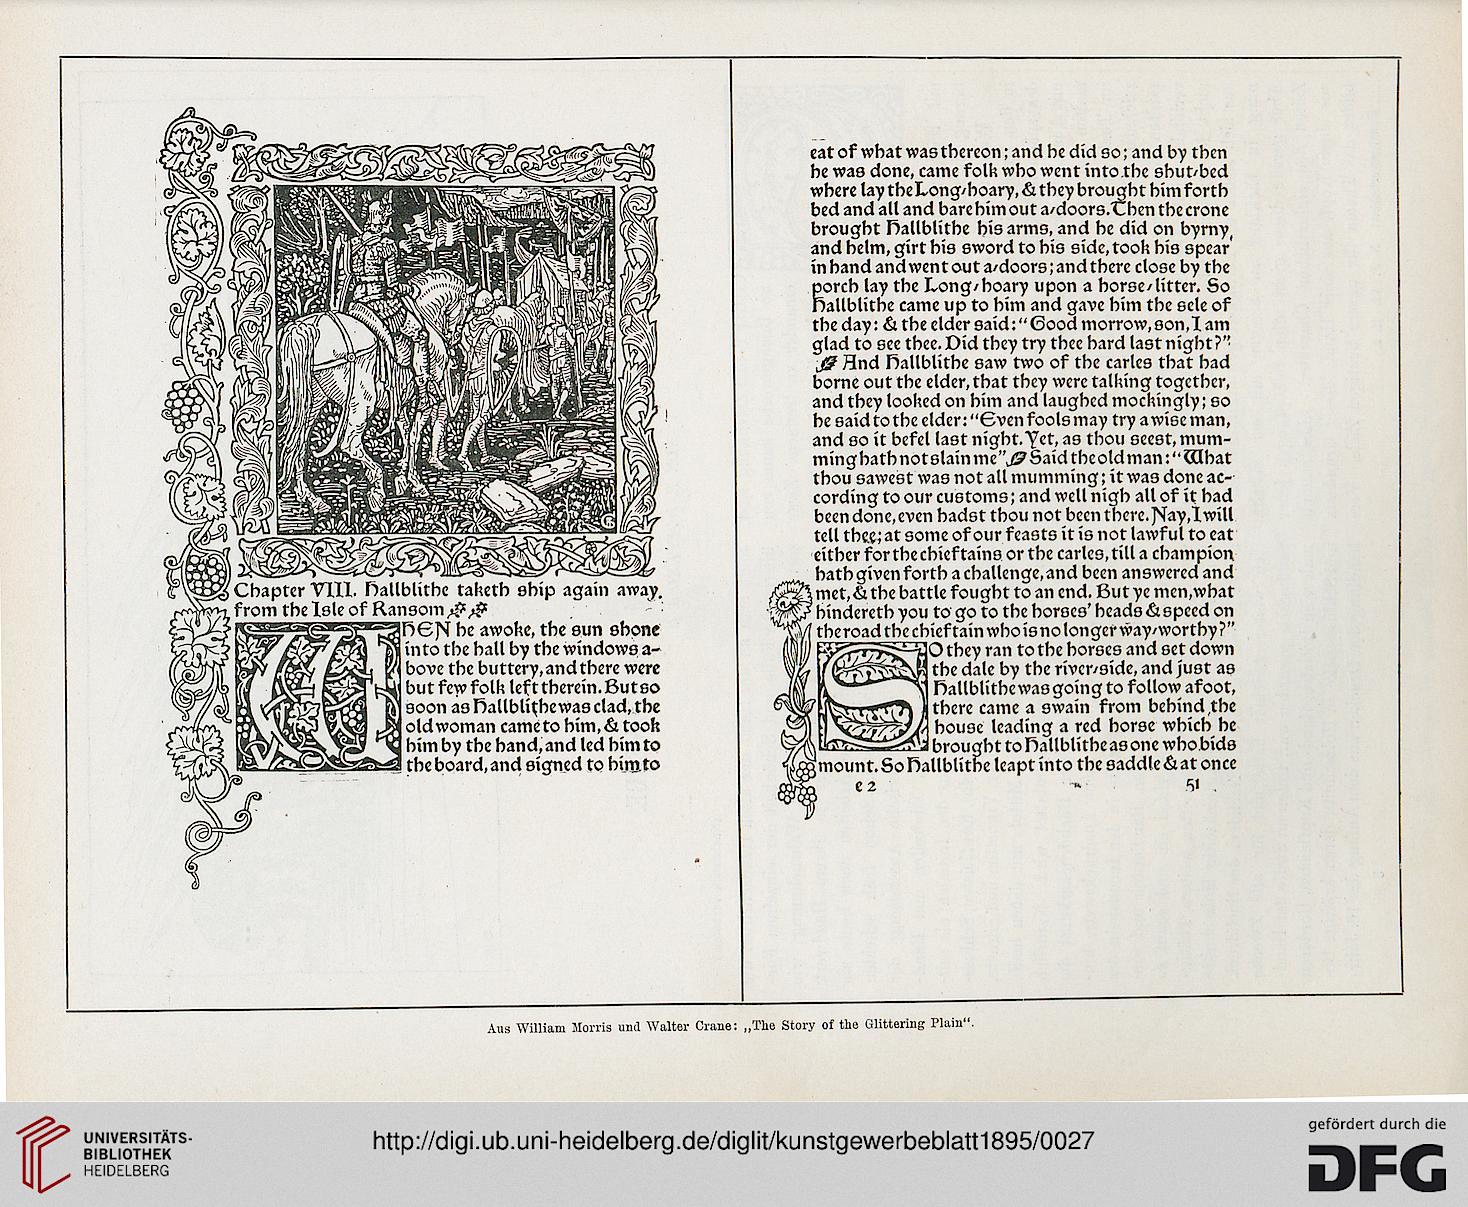 Chapter VIII. Hallblithe taketh ship again away
from the Isle of Ransom
WHEN he awoke, the sun shone
into the hall by the windows a-
bove the buttery, and there were
but few folk left therein. But so
soon as Hallblithe was clad, the
old woman came to him, & took
him by the hand, and led him to
the board, and signed to him to
eat of what was thereon; and he did so; and by then
he was done, came folk who went into the shut-bed
where lay the Long-hoary, & they brought him forth
bed and all and bare him out a-doors. Then the crone
brought Hallblithe his arms, and he did on byrny
and helm, girt his sword to his side, took his spear
in hand and went out a-doors; and there close by the
porch lay the Long-hoary upon a horse-litter. So
Hallblithe came up to him and gave him the sele of
the day: & the elder said: "Good morrow, son, I am
glad to see thee. Did they try thee hard last night?"
And Hallblithe saw two of the carles that had
borne out the elder, that they were talking together,
and they looked on him and laughed mockingly; so
he said to the elder: "Even fools may try a wise man,
and so it befel last night. Yet, as thou seest, mum-
ming hath not slain me" Said the old man: "What
thou sawest was not all mumming; it was done ac-
cording to our customs; and well nigh all of it had
been done, even hadst thou not been there. Nay, I will
tell thee; at some of our feasts it is not lawful to eat
either for the chieftains or the carles, till a champion
hath given forth a challenge, and been answered and
met, & the battle fought to an end. But ye men, what
hindereth you to go to the horses' heads & speed on
the road the chieftain who is no longer way-worthy?"
SO they ran to the horses and set down
the dale by the river-side, and just as
Hallblithe was going to follow afoot,
there came a swain from behind the
house leading a red horse which he
brought to Hallblithe as one who bids
mount. So Hallblithe leapt into the saddle & at once
e 2 51
Aus William Morris und Walter Crane: „The Story of the Glittering Plain“.
UNIVERSITÄTS-
BIBLIOTHEK
HEIDELBERG
http://digi.ub.uni-heidelberg.de/diglit/kunstgewerbeblatt1895/0027
gefördert durch die
DFG